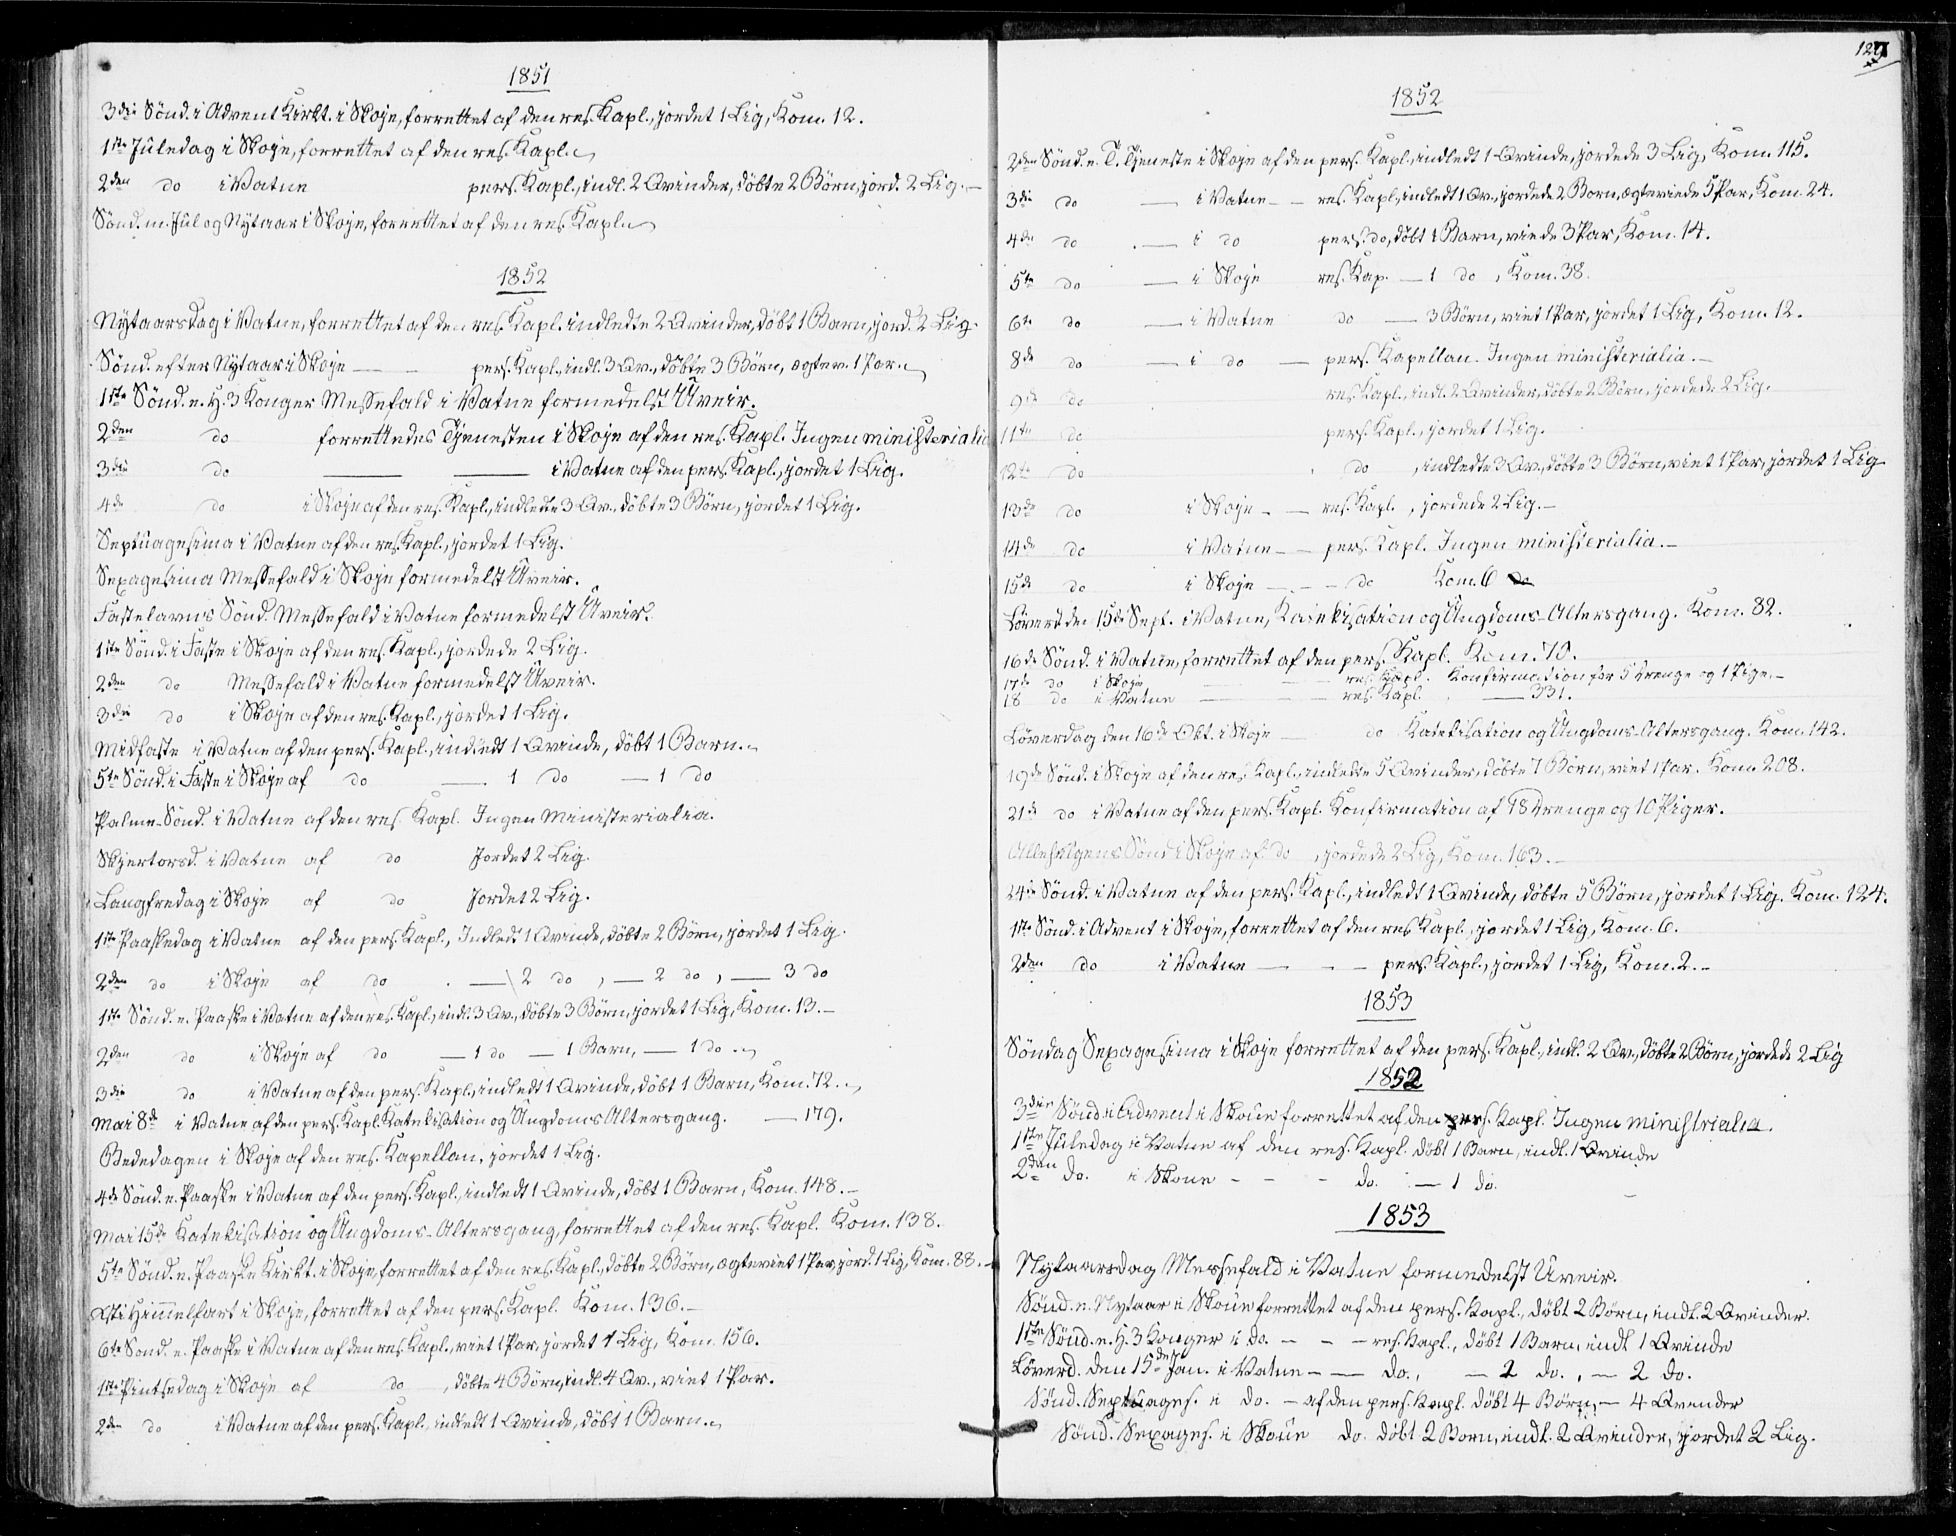 1851
3die Sönd. i Advent Kirkt. i Skoje, forrettet af den res. Kapl., jordet 1 Lig, Kom. 12.
1ste Juledag i Skoje, forrettet af den res. Kapl.
2den do i Vatne pers. Kapl., indl. 2 Qvinder, döbte 2 Börn, jord. 2 Lig.—
Sönd. m. Jul og Nytaar i Skoje, forrettet af den res. Kapl.
1852
Nytaarsdag i Vatne, forrettet af den res. Kapl. indledte 2 Qvinder, döbt 1 Barn, jord. 2 Lig.
Sönd. efter Nytaar i Skoje — — pers. Kapl., indl. 3 Qv., döbte 3 Börn, ægtev. 1 Par.
1ste Sönd. e. H. 3 Konger Messefald i Vatne formedelst Uveir.
2den do forrettedes Tjenesten i Skoje af den res. Kapl. Ingen ministerialia
3die do — — i Vatne af den pers. Kapl., jordet 1 Lig.
4de do i Skoje af den res. Kapl., indledte 3 Qv., döbte 3 Börn, jordet 1 Lig.
Septuagesima i Vatne af den res. Kapl., jordet 1 Lig.
Sexagesima Messefald i Skoje formedelst Uveir.
Fastelavns Sönd. Messefald i Vatne formedelst Uveir.
1ste Sönd. i Faste i Skoje af den res. Kapl., jordede 2 Lig.
2den do Messefald i Vatne formedelst Uveir.
3die do i Skoje af den res. Kapl., jordet 1 Lig.
Midfaste i Vatne af den pers. Kapl., indledt 1 Qvinde, döbt 1 Barn.
5te Sönd. i Faste i Skoje af do — 1 do — 1 do
Palme-Sönd. i Vatne af den res. Kapl. Ingen Ministerialia.
Skjertorsd. i Vatne af do Jordet 2 Lig.
Langfredag i Skoje af do Jordet 2 Lig.
1ste Paaskedag i Vatne af den pers. Kapl., Indledt 1 Qvinde, döbte 2 Börn, jordet 1 Lig.
2den do i Skoje af do — 2 do, — 2 do, — 3 do
1ste Sönd. e. Paaske i Vatne af den res. Kapl., indl. 3 Qv., döbte 3 Börn, jordet 1 Lig, Kom. 13.—
2den do i Skoje af do — 1 do — 1 Barn, — 1 do
3die do i Vatne af den pers. Kapl., indledt 1 Qvinde, döbt 1 Barn, Kom. 72.
Mai 8de i Vatne af den pers. Kapl. Katekisation og Ungdoms Altersgang. — 179.
Bededagen i Skoje af den res. Kapellan, jordet 1 Lig.
4de Sönd. e. Paaske i Vatne af den pers. Kapl., indledt 1 Qvinde, döbt 1 Barn, Kom. 148.—
Mai 15de Katekisation og Ungdoms-Altersgang, forrettet af den res. Kapl. Kom. 138.
5te Sönd. e. Paaske Kirkt. i Skoje, forrettet af den res. Kapl., döbte 2 Börn, ægteviet 1 Par, jord. 1 Lig, Kom. 88.—
Xsti Himmelfart i Skoje, forrettet af den pers. Kapl. Kom. 136.—
6te Sönd. e. Paaske i Vatne af den res. Kapl., viet 1 Par, jordet 1 Lig, Kom. 156.
1ste Pintsedag i Skoje af do, döbte 4 Börn, indl. 4 Qv., viet 1 Par.
2den do i Vatne af den pers. Kapl., indledt 1 Qvinde, döbt 1 Barn.
1852
2den Sönd. e. T. Tjeneste i Skoje af den pers. Kapl., indledt 1 Qvinde, jordede 3 Lig, Kom. 115.
3die do — i Vatne — res. Kapl., indledt 1 Qv., jordede 2 Born, ægteviede 5 Par, Kom. 24.
4de do — i do pers. do, döbt 1 Barn, viede 3 Par, Kom. 14.
5te do — i Skoje res. Kap. — 1 do, Kom. 38.
6te do — i Vatne do — 3 Börn, viet 1 Par, jordet 1 Lig, Kom. 12.
8de do — i do — pers. Kapellan. Ingen ministerialia.—
9de do res. Kapl., indl. 2 Qvinder, döbte 2 Börn, jordede 2 Lig.
11te do pers. Kapl., jordet 1 Lig.
12te do do, indledte 3 Qv., döbte 3 Börn, viet 1 Par, jordet 1 Lig
13de do i Skoje — res. Kapl., jordede 2 Lig.—
14de do i Vatne — pers. Kapl. Ingen ministerialia.—
15de do i Skoje — do Kom. 6
Löverd. den 15de Sept. i Vatne, Katekisation og Ungdoms-Altersgang. Kom. 82.
16de Sönd. i Vatne, forrettet af den pers. Kapl. Kom. 70.
17de do i Skoje res. Kapl. Konfirmation for 5 Drenge og 1 Pige.—
18 do i Vatne — res. Kapl. — 331.
Löverdag den 16de Okt. i Skoje — do Katekisation og Ungdoms-Altersgang. Kom. 142.
19de Sönd. i Skoje af den res. Kapl., indledte 5 Qvinder, döbte 7 Börn, viet 1 Par. Kom. 208.
21de do i Vatne af den pers. Kapl. Konfirmation af 18 Drenge og 10 Piger.
Allehelgens Sönd i Skoje af do, jordede 2 Lig, Kom. 163.—
24de Sönd. i Vatne af den pers. Kapl., indledt 1 Qvinde, döbte 5 Börn, jordet 1 Lig. Kom. 124.
1ste Sönd. i Advent i Skoje, forrettet af den res Kapl., jordet 1 Lig, Kom. 6.
2den do i Vatne — — pers. Kapl., jordet 1 Lig, Kom. 2.—
1853
Söndag Sexagesima i Skoje forrettet af den pers. Kapl., indl. 2 Qv., döbte 2 Börn, jordede 2 Lig
1852
3die Sönd i Advent i Skoue forrettet af den pers. Kapl. Ingen ministrialia.
1ste Juledag i Vatne af den res. Kapl. döbt 1 Barn, indl. 1 Qvinde
2den do. i Skoue - - - do. — 1 do.
1853
Nytaarsdag Messefald i Vatne formedelst Uveir.
Sönd. e. Nytaar i Skoue forrettet af den pers. Kapl., döbt 2 Börn, indl. 2 Qvinder.
1ste Sönd. e. H. 3 Konger i do. - - - res. Kapl., döbt 1 Barn, indl 1 Qvinde
Löverd. den 15de Jan. i Vatne - — do., — 2 do., — 2 do.
Sönd. Septuages. i do. — af den pers. Kapl. döbt 4 Börn, — 4 Qvinder
Sönd. Sexages. i Skoue do. döbt 2 Born, indl. 2 Qvinder, jordet 2 Lig.